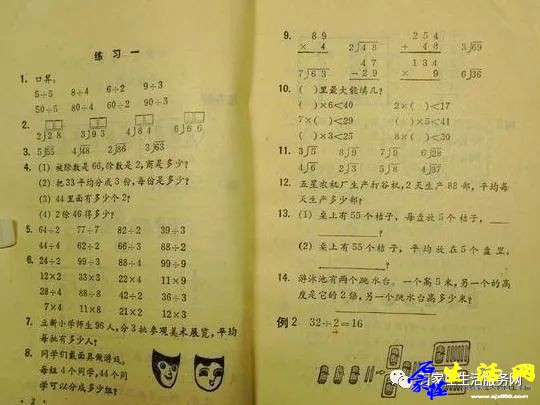 练习一
1. 口算:
5÷5 8÷4 6÷2 9÷3
50÷5 80÷4 60÷2 90÷3
2. 2)28 3)93 4)84 6)66
3. 5)55 4)48 2)86 3)63
4. (1) 被除数是66,除数是2,商是多少?
(2) 把33平均分成3份,每份是多少?
(3) 44里面有多少个2?
(4) 2除46得多少?
5. 64÷2 77÷7 82÷2 39÷3
44÷4 62÷2 66÷3 88÷2
6. 24÷2 99÷3 88÷4 99÷9
12×2 33×3 22×4 11×9
28÷4 88÷8 42÷2 36÷3
7×4 11×8 21×2 12×3
7. 立新小学师生96人,分3批参观美术展览,平均
每批有多少人?
8. 同学们戴面具做游戏。
每组4个同学,44个同
学可以分成多少组?
· 2 ·
9. 89 254
× 4 2)48 + 48 3)69
47 134
7)63 -29 × 9 6)36
10. ( )里最大能填几?
( )×6<40 2×( )<17
7×( )<29 ( )×5<41
( )×3<25 8×( )<30
11. 3)3 8)9 7)9 6)28
4)6 2)3 5)8 4)37
12. 五星农机厂生产打谷机,2天生产88部,平均每
天生产多少部?
13. (1) 桌上有55个桔子,每盘放5个桔子,
?
(2) 桌上有55个桔子,平均放在5个盘里,
?
14. 游泳池有两个跳水台。一个高5米,另一个的高
度是它的2倍,另一个跳水台高多少米?
例2 32÷2=16
生活网
生活服务网
www.ajs050.com